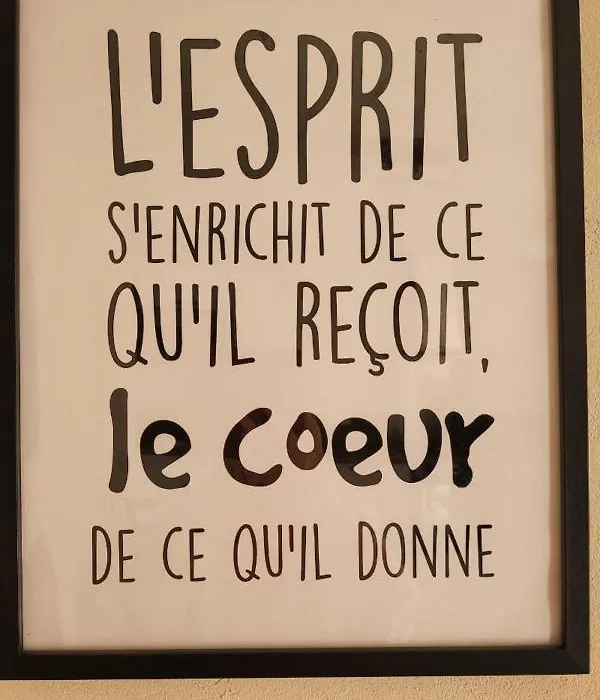 L'ESPRIT
S'ENRICHIT DE CE
QU'IL REÇOIT,
le coeur
DE CE QU'IL DONNE